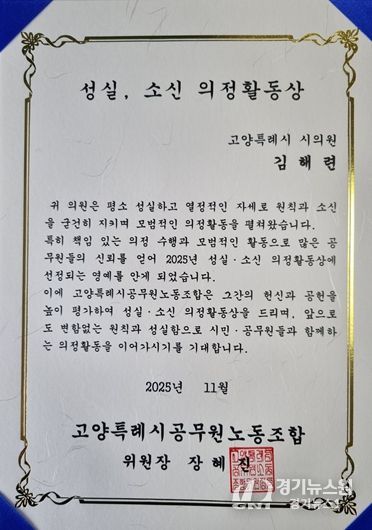 성실, 소신 의정활동상
고양특례시 시의원
김 해 련
귀 의원은 평소 성실하고 열정적인 자세로 원칙과 소신
을 굳건히 지키며 모범적인 의정활동을 펼쳐왔습니다.
특히 책임 있는 의정 수행과 모범적인 활동으로 많은 공
무원들의 신뢰를 얻어 2025년 성실·소신 의정활동상에
선정되는 영예를 안게 되었습니다.
이에 고양특례시공무원노동조합은 그간의 헌신과 공헌을
높이 평가하여 성실·소신 의정활동상을 드리며, 앞으로
도 변함없는 원칙과 성실함으로 시민·공무원들과 함께하
는 의정활동을 이어가시기를 기대합니다.
2025년 11월
고양특례시공무원노동조합
위원장 장 혜 진
경기뉴스원
경기뉴스원